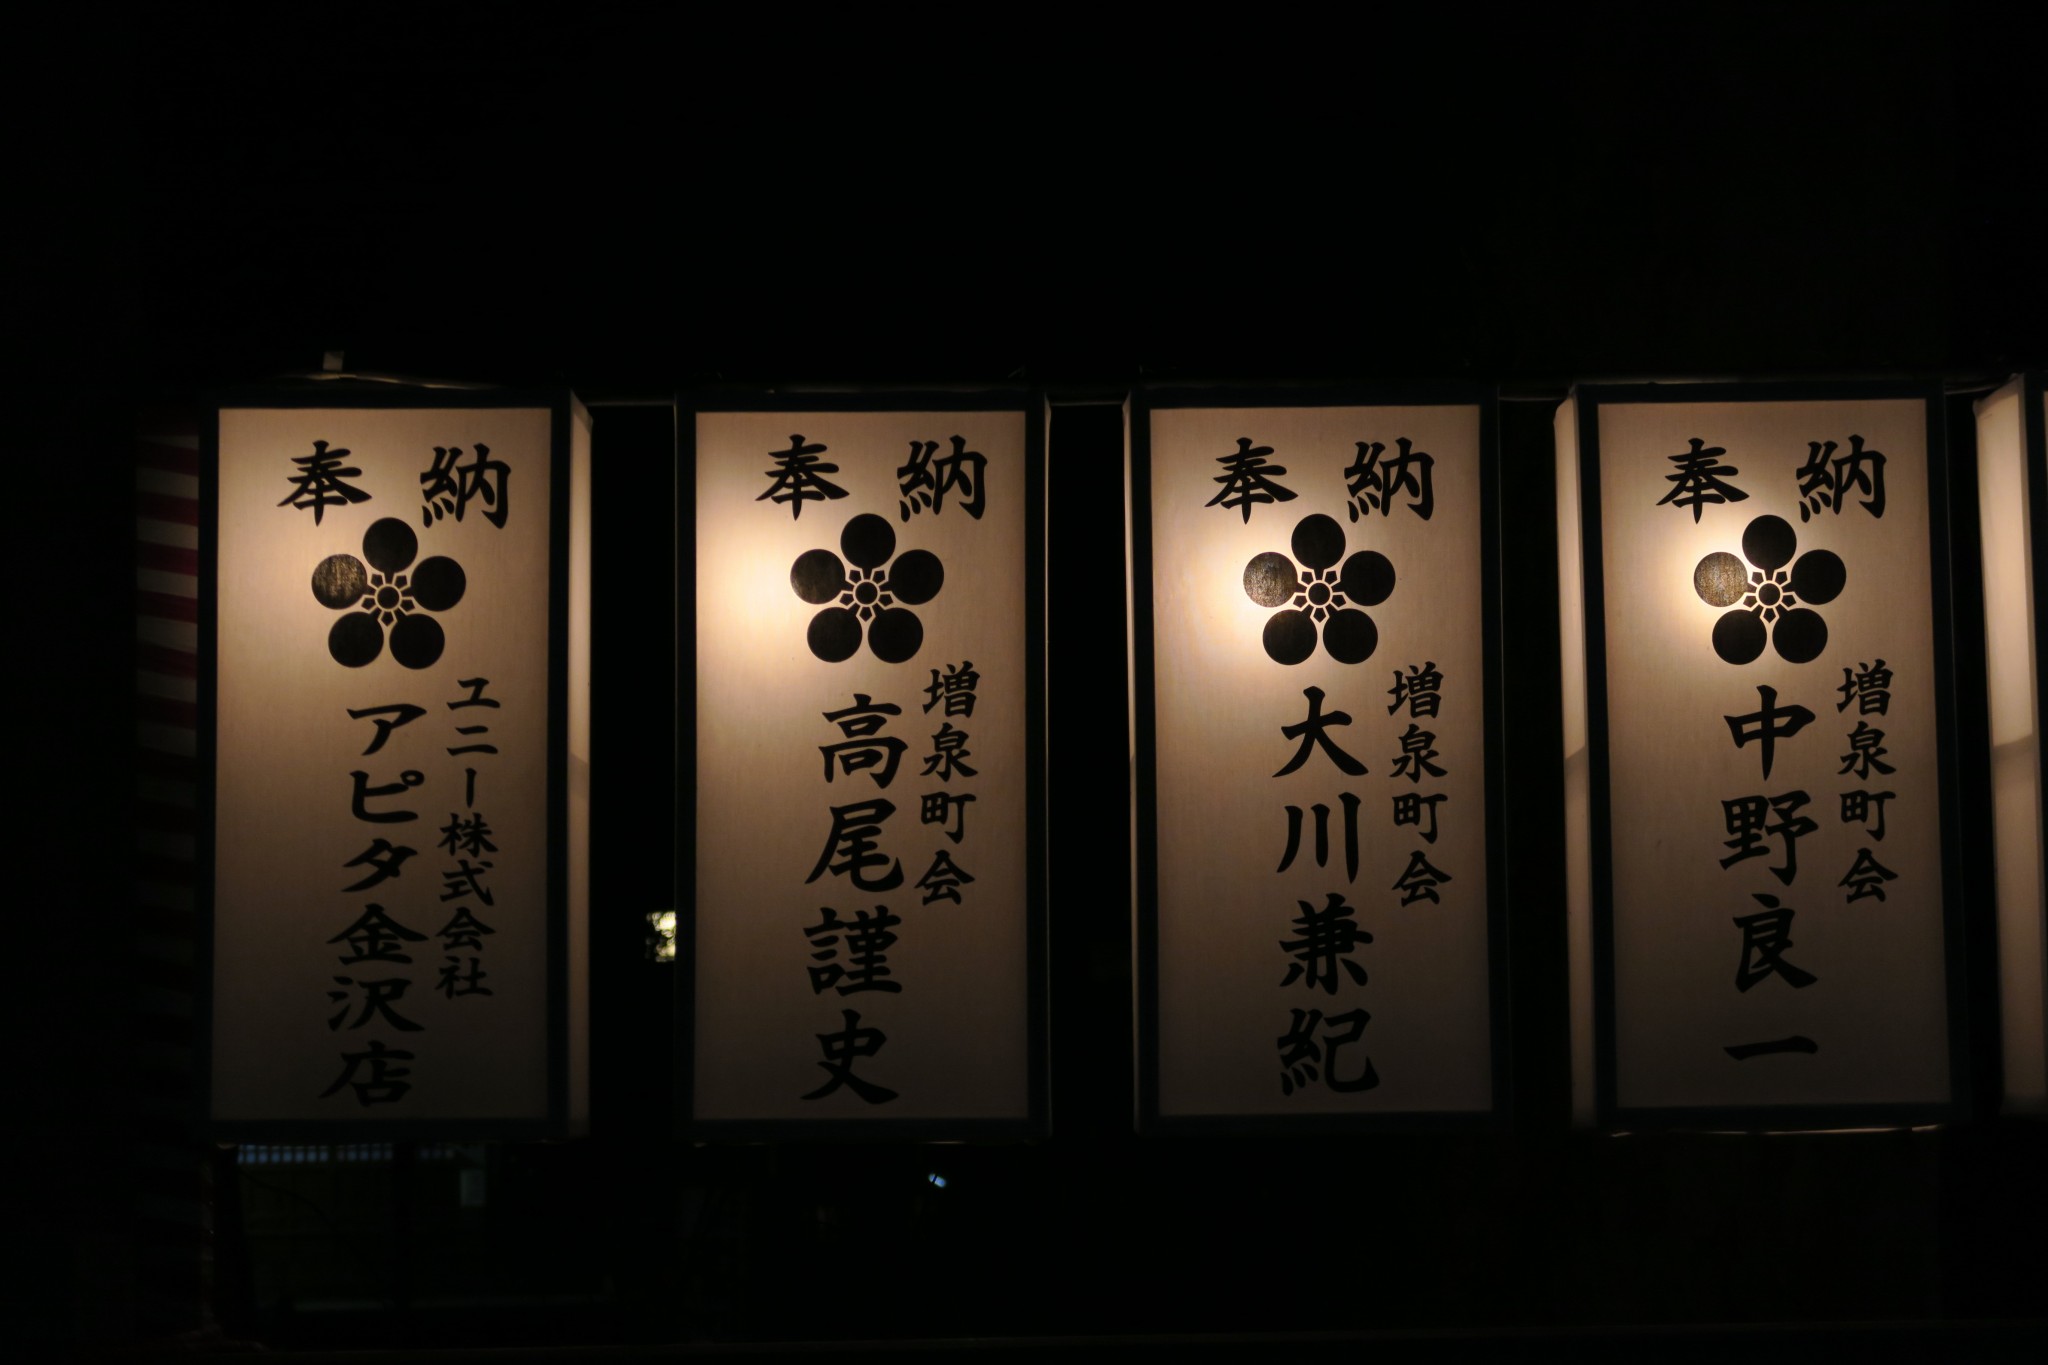 奉納
ユニー株式会社
アピタ金沢店
奉納
増泉町会
高尾謹史
奉納
増泉町会
大川兼紀
奉納
増泉町会
中野良一